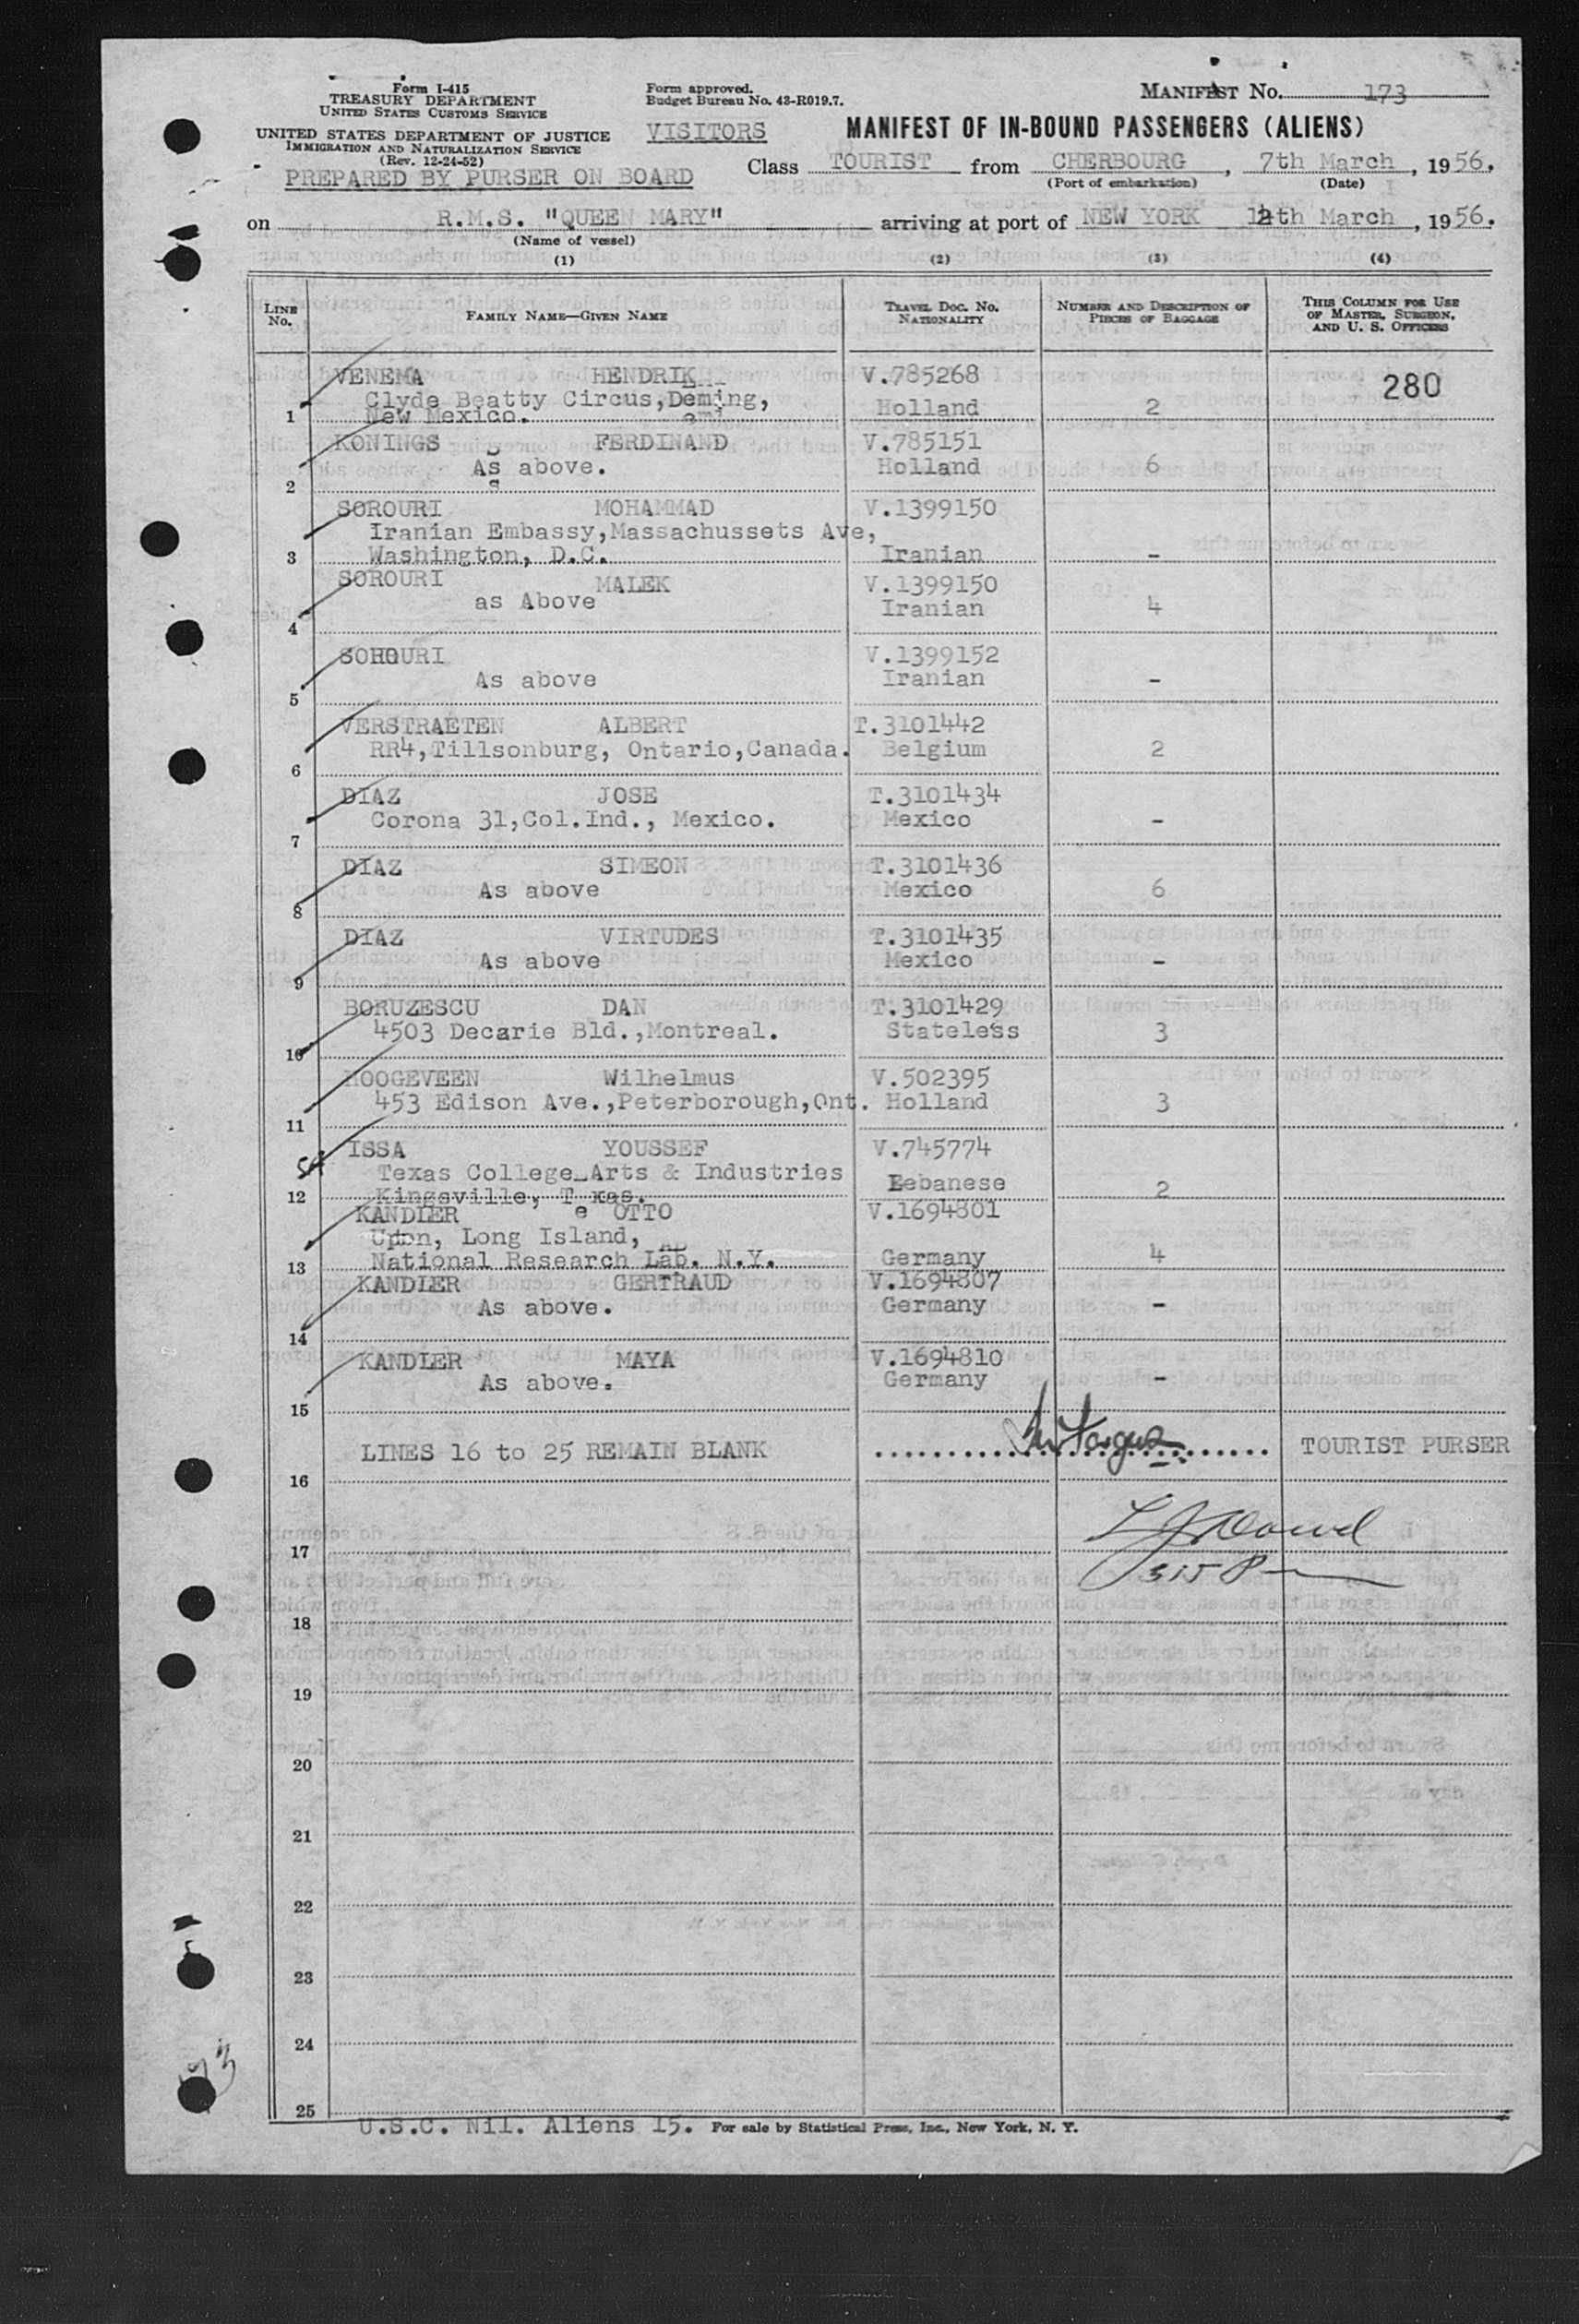 Form I-415
TREASURY DEPARTMENT
UNITED STATES CUSTOMS SERVICE
UNITED STATES DEPARTMENT OF JUSTICE
IMMIGRATION AND NATURALIZATION SERVICE
(Rev. 12-24-52)
PREPARED BY PURSER ON BOARD
Form approved.
Budget Bureau No. 43-R019.7.
VISITORS
MANIFEST NO. 173
MANIFEST OF IN-BOUND PASSENGERS (ALIENS)
Class TOURIST from CHERBOURG, 7th March, 1956.
(Port of embarkation) (Date)
on R.M.S. "QUEEN MARY" arriving at port of NEW YORK th March, 1956.
(Name of vessel)
(1) (2) (3) (4)
LINE NO. FAMILY NAME—GIVEN NAME TRAVEL DOC. NO. NATIONALITY NUMBER AND DESCRIPTION OF PIECES OF BAGGAGE THIS COLUMN FOR USE OF MASTER, SURGEON, AND U. S. OFFICERS
VENEMA HENDRIK V.785268 280
Clyde Beatty Circus,Deming,
1 New Mexico. Holland 2
KONINGS FERDINAND V.785151
As above. Holland 6
2
SOROURI MOHAMMAD V.1399150
Iranian Embassy,Massachussets Ave,
3 Washington, D.C. Iranian -
SOROURI MALEK V.1399150
as Above Iranian 4
4
SOROURI V.1399152
As above Iranian -
5
VERSTRAETEN ALBERT T.3101442
RR4,Tillsonburg, Ontario,Canada. Belgium 2
6
DIAZ JOSE T.3101434
Corona 31,Col.Ind., Mexico. Mexico -
7
DIAZ SIMEON T.3101436
As above Mexico 6
8
DIAZ VIRTUDES T.3101435
As above Mexico -
9
BORUZESCU DAN T.3101429
4503 Decarie Bld.,Montreal. Stateless 3
10
HOOGEVEEN Wilhelmus V.502395
453 Edison Ave.,Peterborough,Ont. Holland 3
11
ISSA YOUSSEF V.745774
Texas College Arts & Industries Lebanese
12 Kingsville, Texas. 2
KANDLER OTTO V.1694801
Upon, Long Island,
13 National Research Lab. N.Y. Germany 4
KANDLER GERTRAUD V.1694807
As above. Germany -
14
KANDLER MAYA V.1694810
As above. Germany -
15
LINES 16 to 25 REMAIN BLANK TOURIST PURSER
16
17
18
19
20
21
22
23
24
25
U.S.C. Nil. Aliens 15. For sale by Statistical Press, Inc., New York, N. Y.